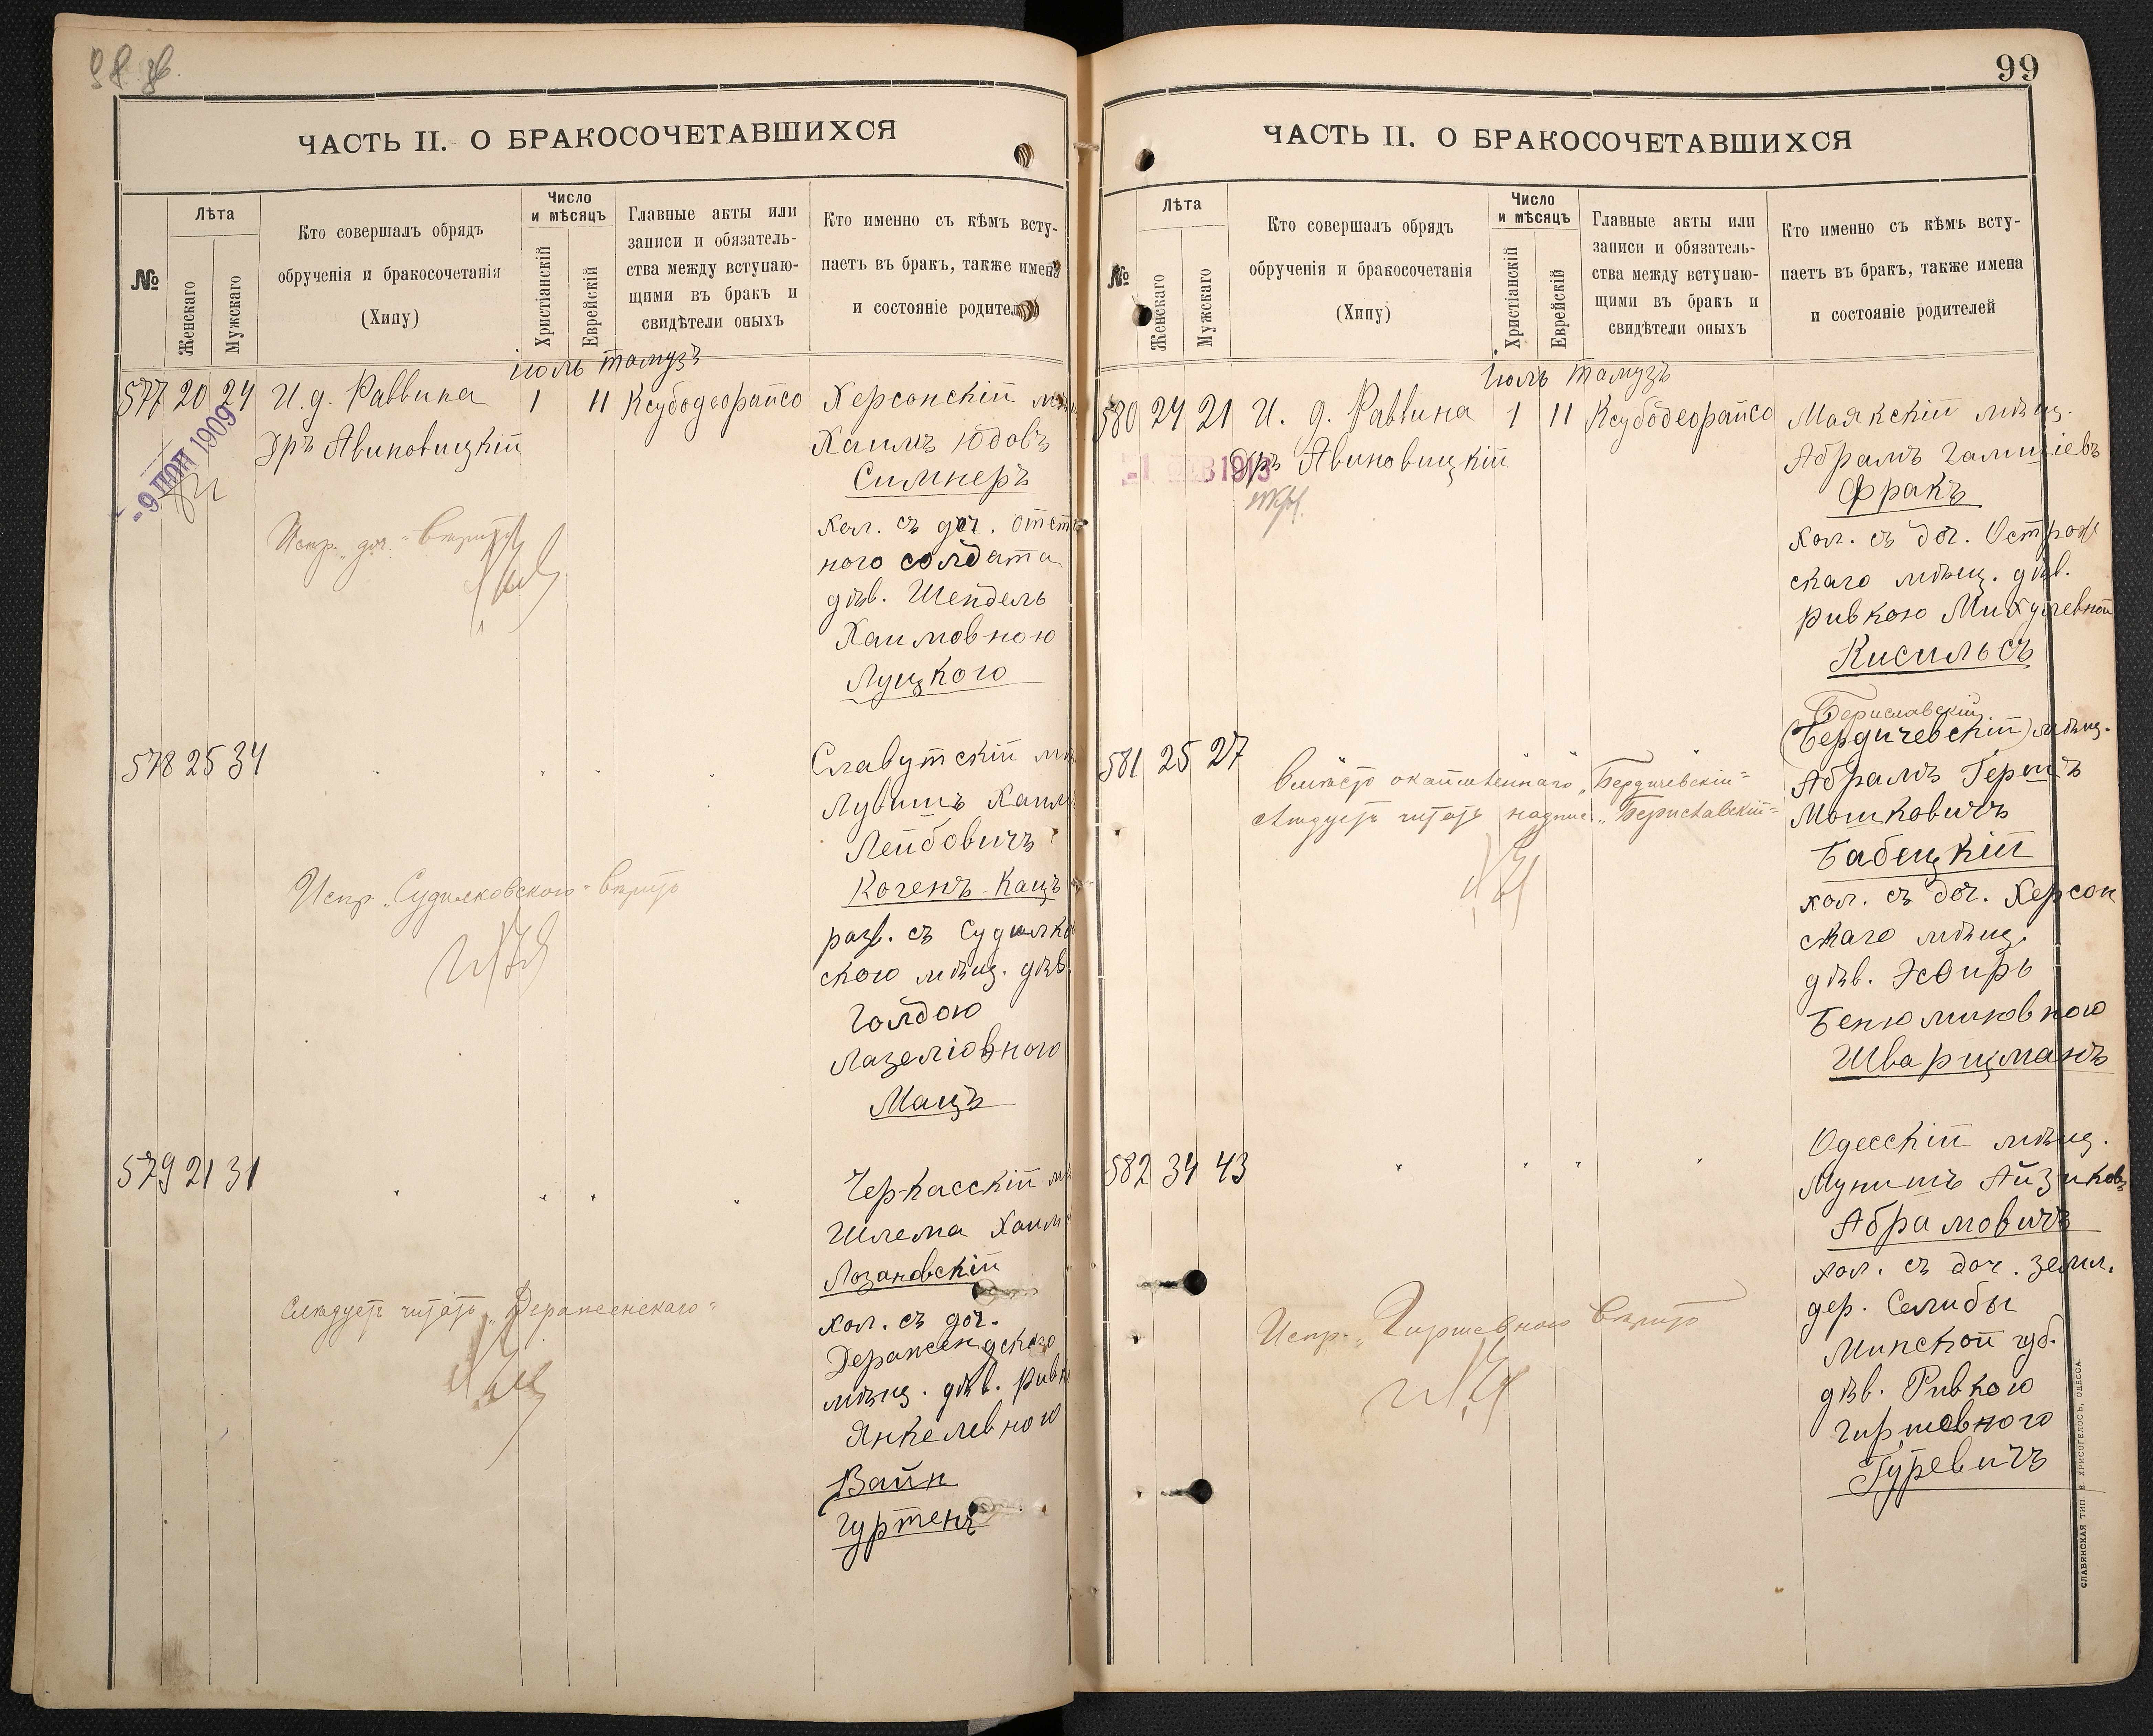 98 об.
ЧАСТЬ II. О БРАКОСОЧЕТАВШИХСЯ
№
Лѣта
Женскаго
Мужскаго
Кто совершалъ обрядъ
обрученія и бракосочетанія
(Хипу)
Число
и мѣсяцъ
Христіанскій
Еврейскій
Главные акты или
записи и обязатель-
ства между вступаю-
щими въ бракъ и
свидѣтели оныхъ
Кто именно съ кѣмъ всту-
паетъ въ бракъ, также имена
и состояніе родител
іюль тамузъ
577 20 24 И. д. Раввина 1 11 Ксубодеорайсо Херсонскій
Дръ Авиновицкій Хаимъ Юдовъ
1909
Симнеръ
хол. съ доч. отст
Испр. „доч.“ вѣрно
ного солдата
дѣв. Шейдель
Хаимовною
Луцкого
578 25 34 Славутскій
Лувишъ Хаим
Лейбовичъ
Испр. „Судилковского“ вѣрно
Коченъ-Кацъ
разв. съ Судилко
ского мѣщ. дѣв.
Голдою
Лазеліовною
Мацъ
579 21 31 Черкасскій
Шлема Хаим
Лозановскій
Слѣдуетъ читать „Деражненскаго“
хол. съ доч.
мѣщ. дѣв. Ривк
Янкелевною
Вайн
гуртенъ
99
ЧАСТЬ II. О БРАКОСОЧЕТАВШИХСЯ
№
Лѣта
Женскаго
Мужскаго
Кто совершалъ обрядъ
обрученія и бракосочетанія
(Хипу)
Число
и мѣсяцъ
Христіанскій
Еврейскій
Главные акты или
записи и обязатель-
ства между вступаю-
щими въ бракъ и
свидѣтели оныхъ
Кто именно съ кѣмъ всту-
паетъ въ бракъ, также имена
и состояніе родителей
Іюль тамузъ
580 24 21 И. д. Раввина 1 11 Ксубодеорайсо Маякскій мѣщ.
Дръ Авиновицкій Абрамъ
-1 ФЕВ 1913
Фракъ
хол. съ доч. Острож
скаго мѣщ. дѣв.
Ривкою
Кисильсъ
Бериславскій
581 25 27 (Бердичевскій) мѣщ.
Вмѣсто окаймленнаго „Бердичевскій“
Абрамъ Гершъ
слѣдуетъ читать надпис. „Бериславскій“
Мошковичъ
Бабецкій
хол. съ доч. Херсон
скаго мѣщ.
дѣв. Эсѳирь
Бенюминовною
Шварцманъ
582 34 43 Одесскій мѣщ.
Мунишъ Айзиковъ
Абрамовичъ
хол. съ доч. земл.
дер. Селибы
Испр. „Гиршевною“ вѣрно
Минской губ.
дѣв. Ривкою
Гиршевною
Гуревичъ
СЛАВЯНСКАЯ ТИП. Е. ХРИСОГЕЛОСЪ, ОДЕССА.